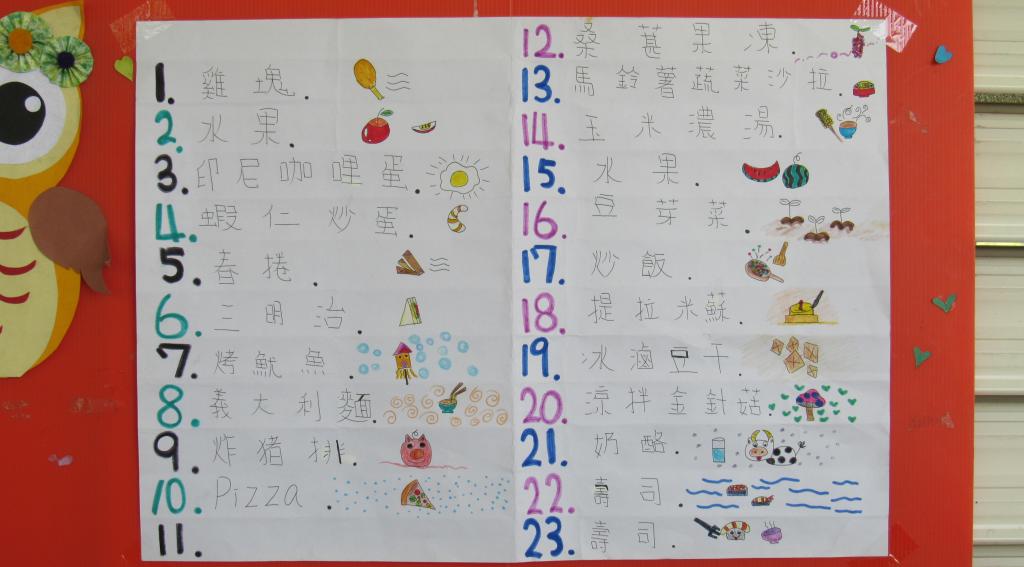 1. 雞塊.
2. 水果.
3. 印尼咖哩蛋.
4. 蝦仁炒蛋.
5. 春捲.
6. 三明治.
7. 烤魷魚.
8. 義大利麵.
9. 炸豬排.
10. Pizza.
11.
12. 桑葚果凍.
13. 馬鈴薯蔬菜沙拉.
14. 玉米濃湯.
15. 水果.
16. 豆芽菜.
17. 炒飯.
18. 提拉米蘇.
19. 冰滷豆干.
20. 涼拌金針菇.
21. 奶酪.
22. 壽司.
23. 壽司.